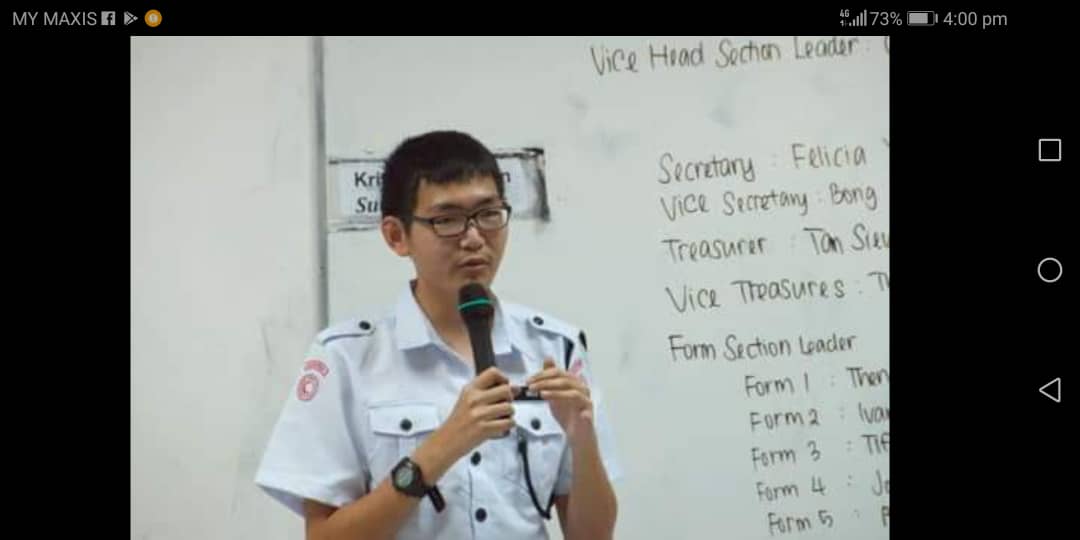 MY MAXIS
4G 73% 4:00 pm
Vice Head Section Leader :
Kri
Su
Secretary : Felicia
Vice Secretary : Bong
Treasurer : Tan Siew
Vice Treasures :
Form Section Leader
Form 1 : Then
Form 2 : Ivan
Form 3 : Tif
Form 4 : Jo
Form 5 :